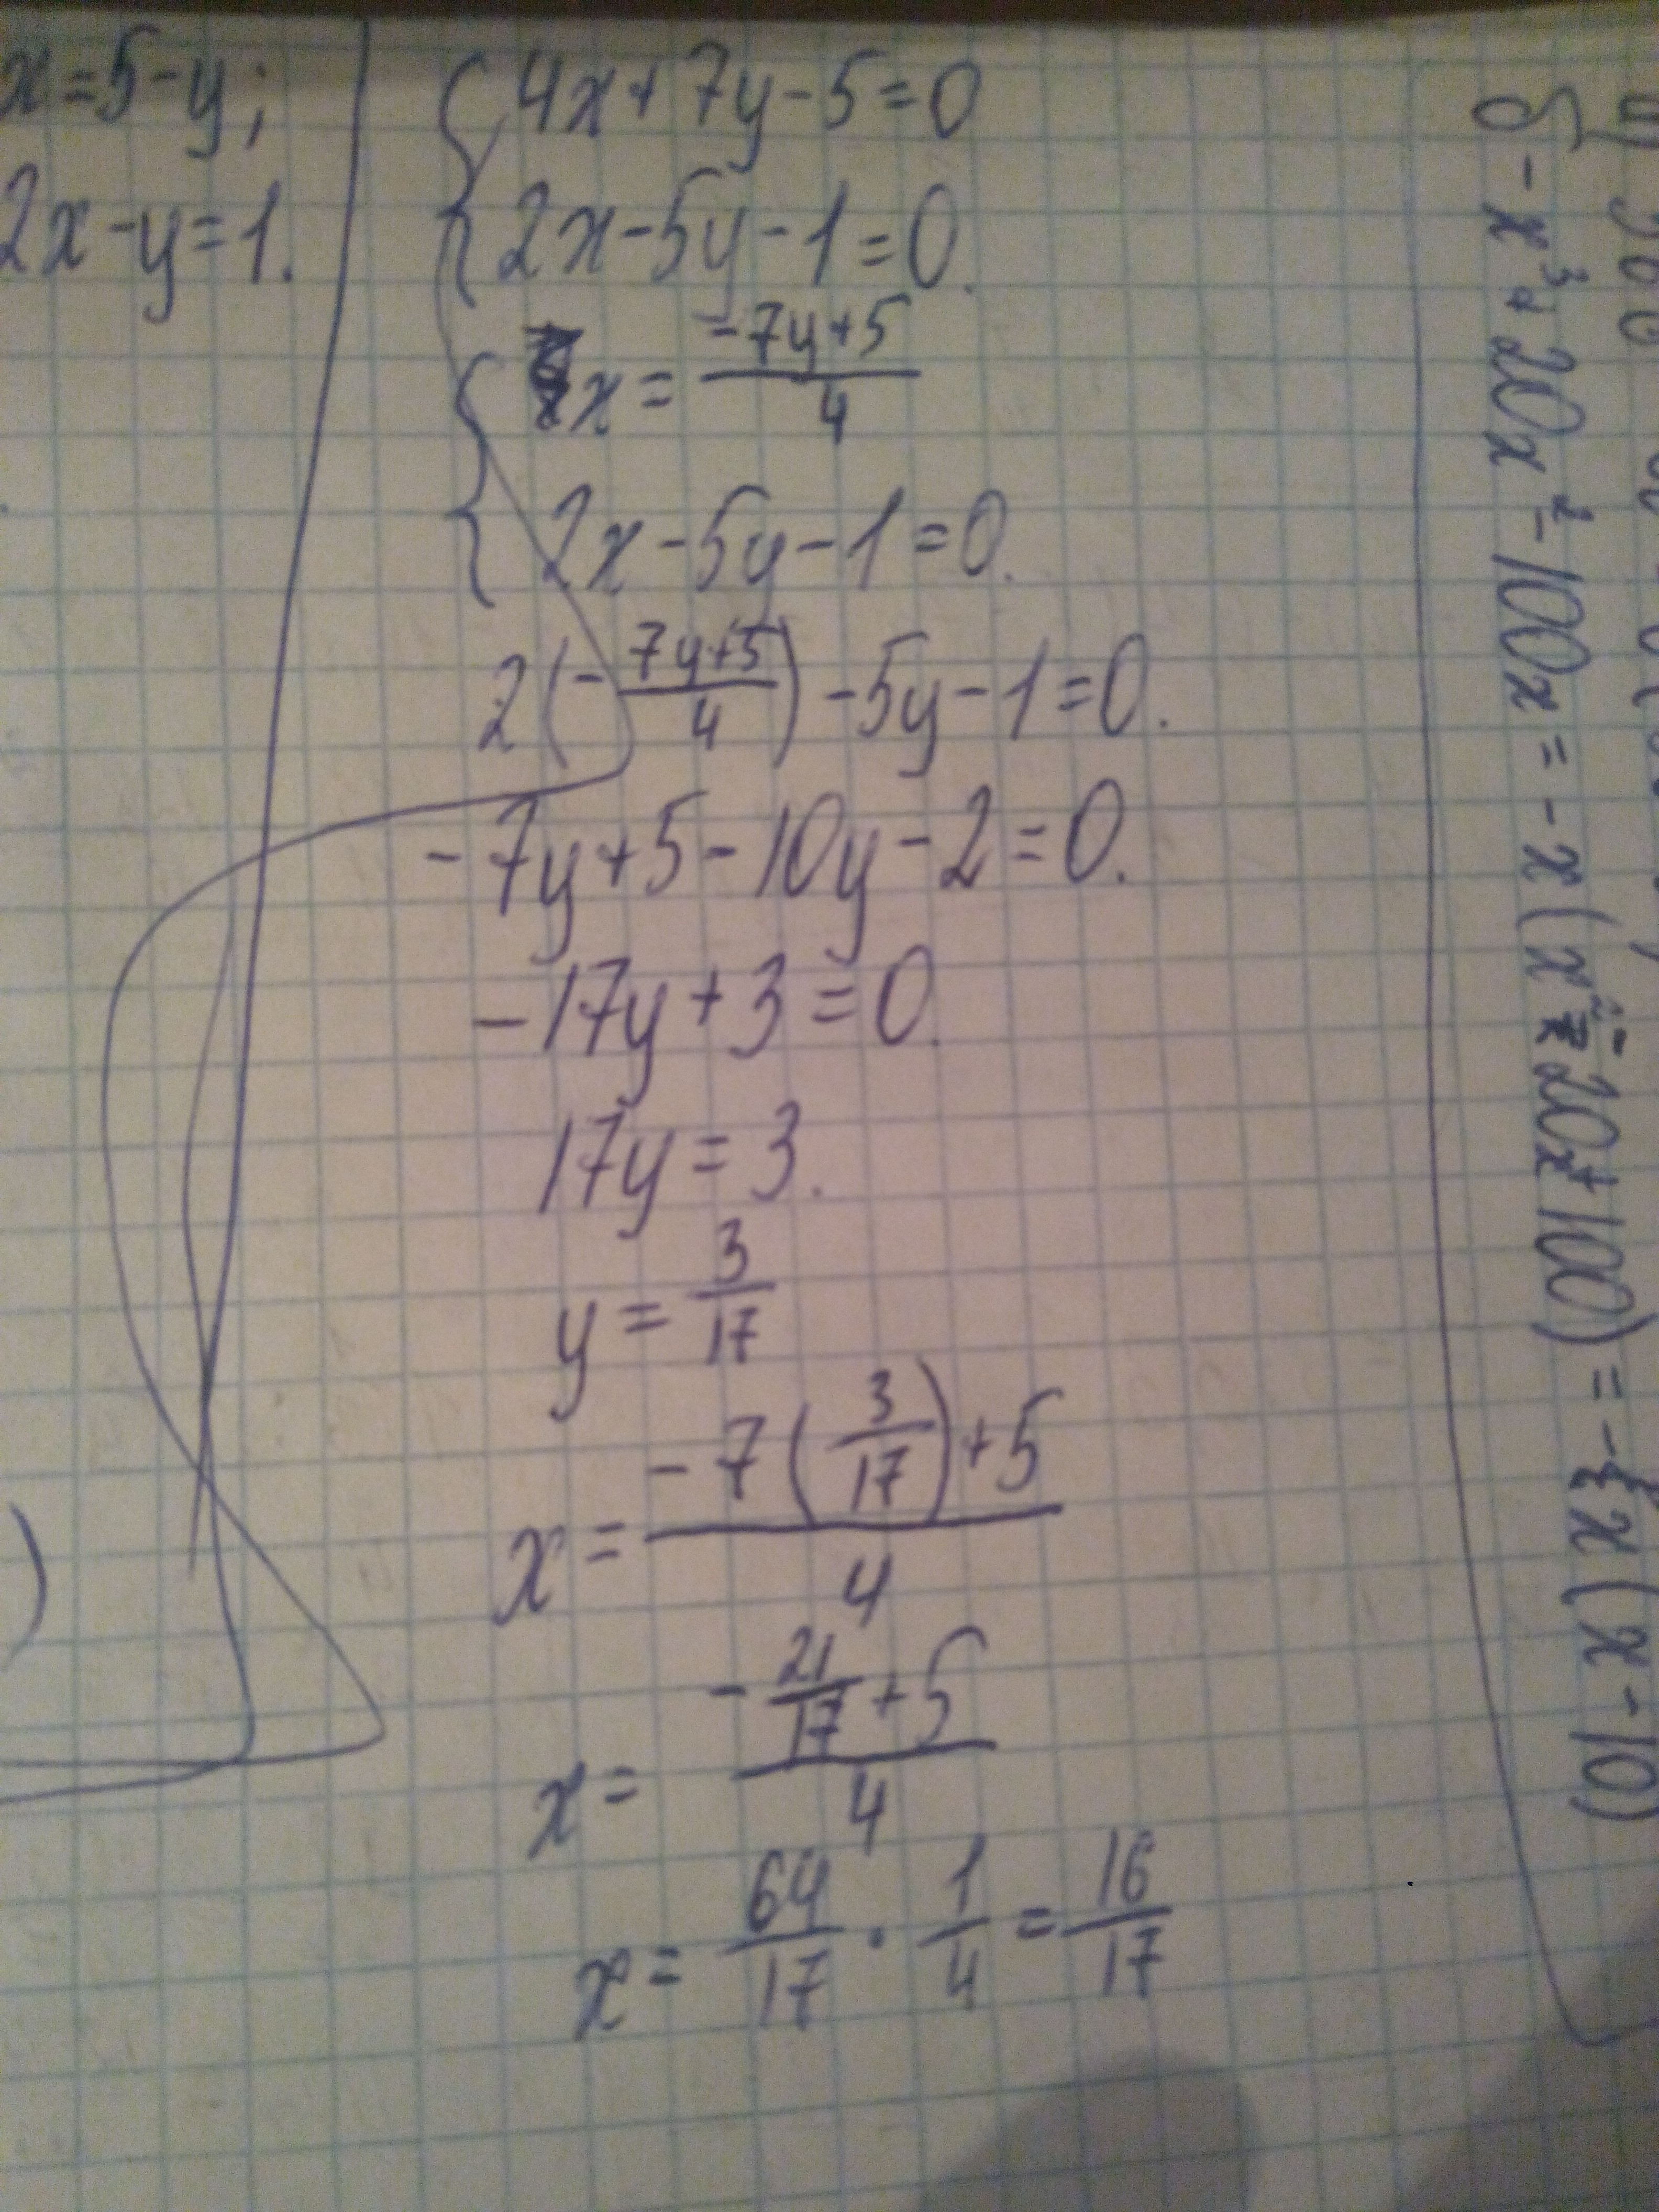 x=5-y;
2x-y=1.
4x+7y-5=0
2x-5y-1=0.
x=(-7y+5)/4
2x-5y-1=0.
2(-(7y+5)/4)-5y-1=0.
-7y+5-10y-2=0.
-17y+3=0.
17y=3.
y=3/17
x=(-7(3/17)+5)/4
x=(-21/17+5)/4
x=64/17·1/4=16/17
-x³+20x²-100x=-x(x²-20x+100)=-x(x-10)